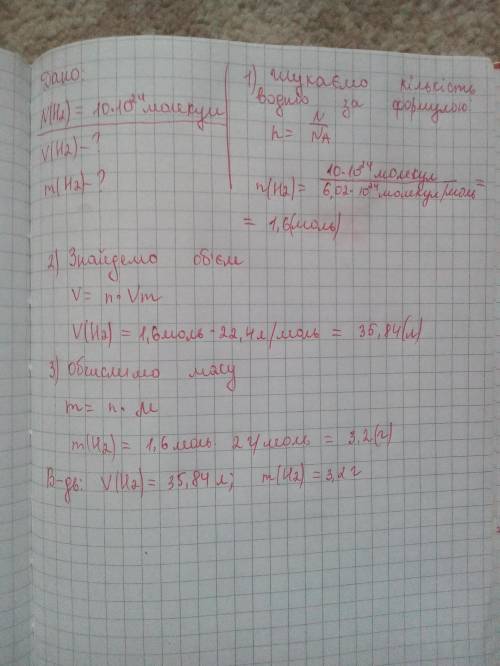 Дано:
N(H2) = 10·10²⁴ молекул
V(H2) - ?
m(H2) - ?
1) Шукаємо кількість
водню за формулою:
n = N/NA
n(H2) = 10·10²⁴ молекул / 6,02·10²⁴ молекул/моль =
= 1,6(моль)
2) Знайдемо об'єм
V = n·Vm
V(H2) = 1,6 моль · 22,4 л/моль = 35,84(л)
3) Обчислимо масу
m = n·M
m(H2) = 1,6 моль · 2 г/моль = 3,2(г)
В-дь: V(H2) = 35,84 л; m(H2) = 3,2 г